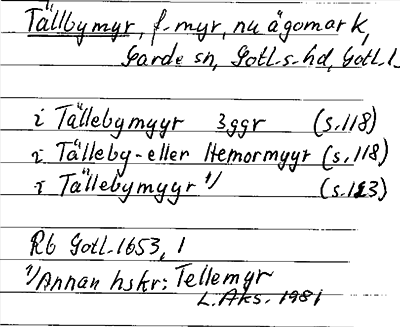 Tällbymyr, f. myr, nu ägomark,
Garde sn, Gotl. s. hd, Gotl. l.
i Tällebymyyr 3 ggr (s. 118)
i Tälleby- eller Hemormyyr (s. 118)
i Tällebymyyr 1/ (s. 123)
Rb Gotl. 1653, 1
1/ Annan hskr: Tellemyr
L. Aks. 1981